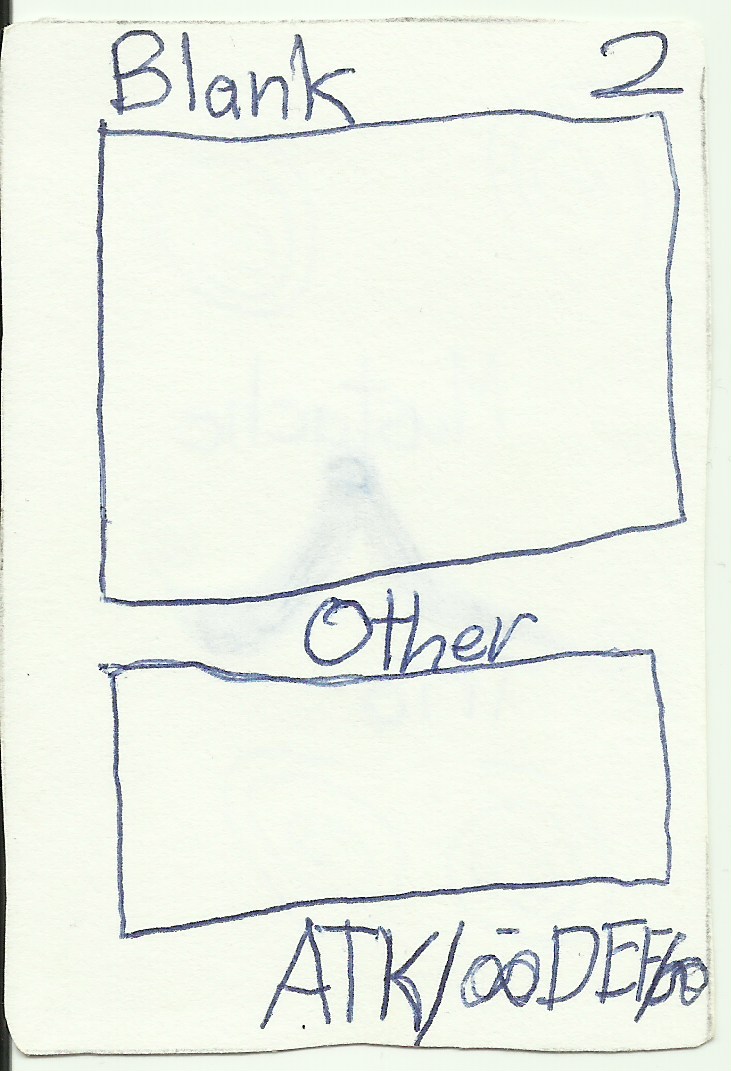 Blank 2
Other
ATK/ōō DEF/60